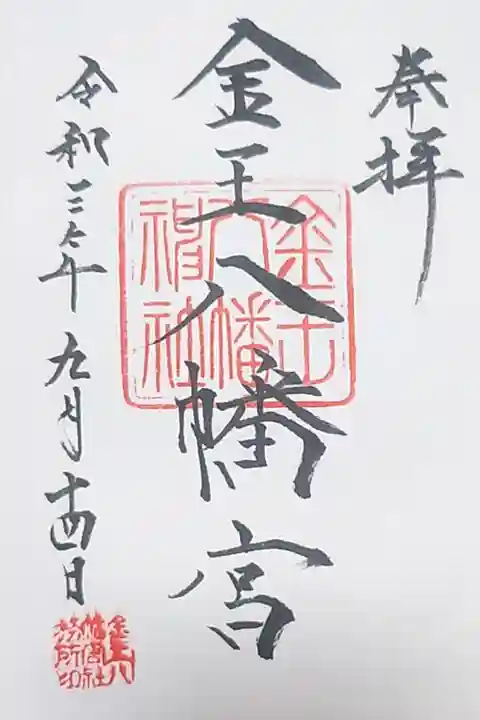 奉拝
金王八幡宮
金王八幡神社
令和三年九月十四日
金王八幡宮社務所印